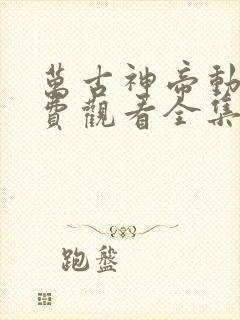 萬古神帝動
費觀看全集
跑盤